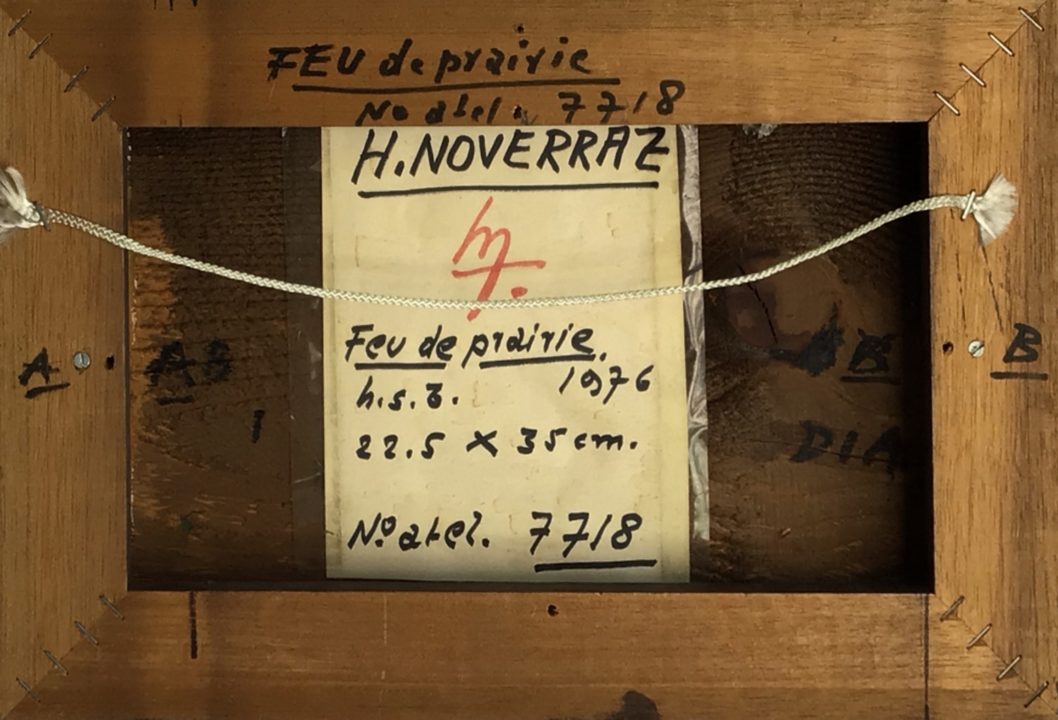 FEU de prairie
No atel. 7718
H. NOVERRAZ
Feu de prairie.
h.s.b. 1976
22.5 X 35 cm.
N.º atel. 7718
A
B
B
DIA